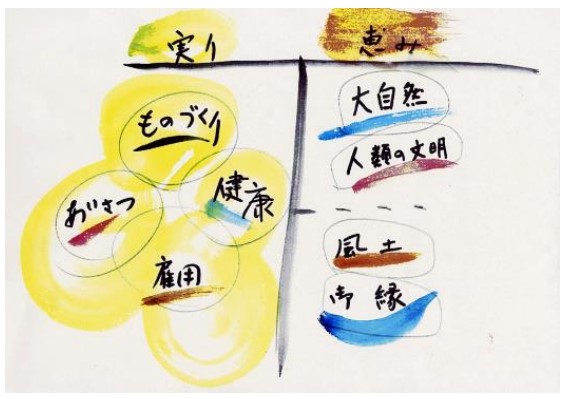 実り
恵み
ものづくり
健康
あいさつ
雇用
大自然
人類の文明
風土
御縁